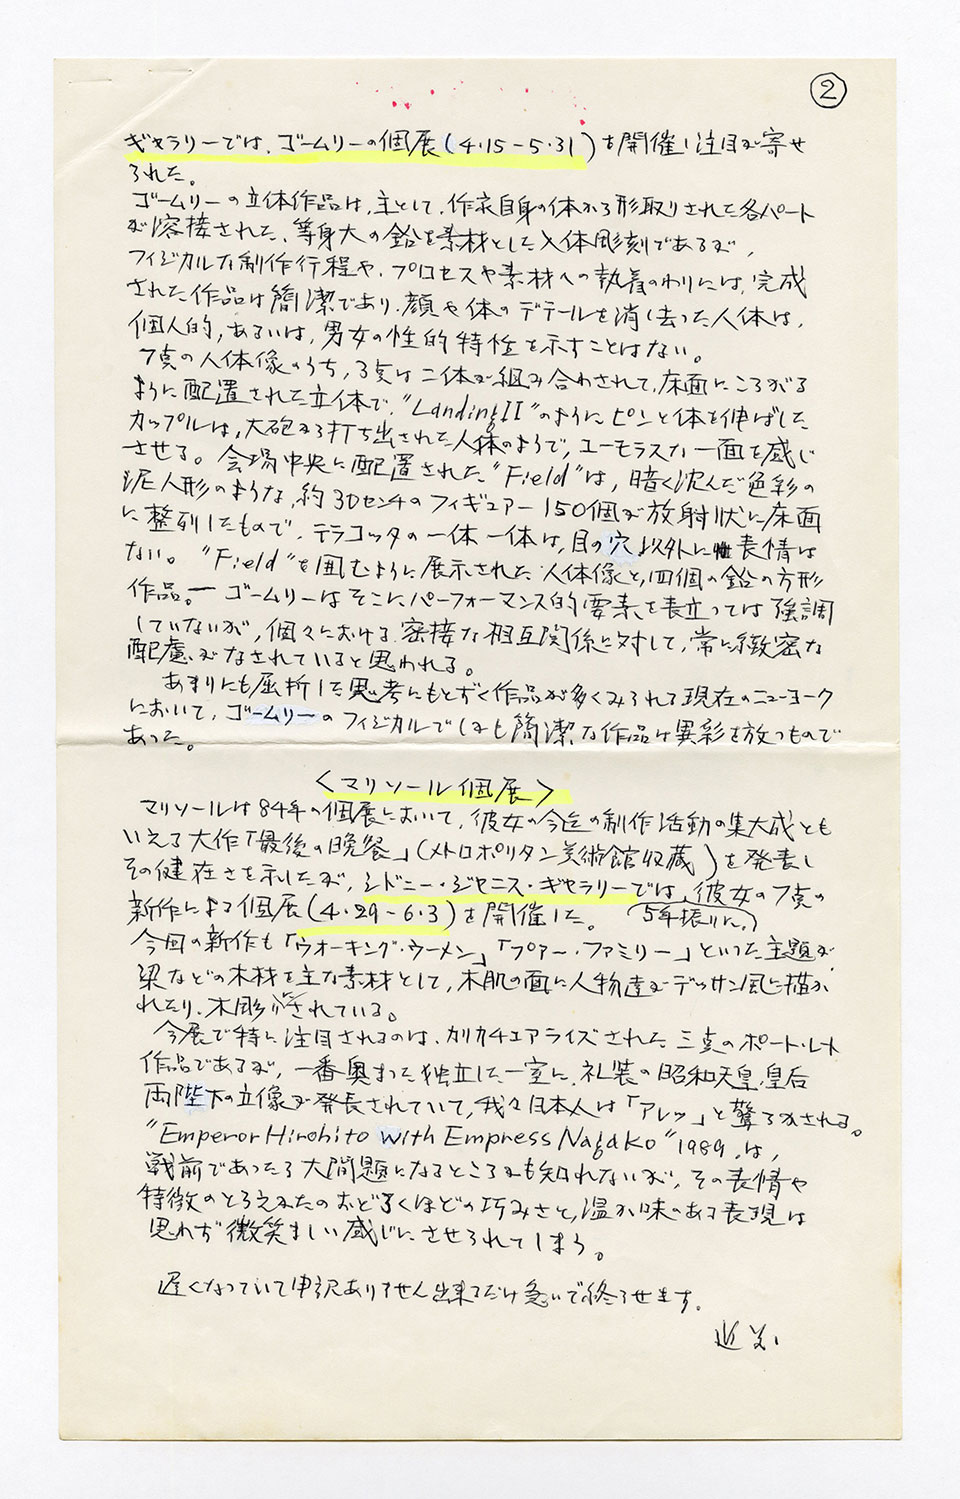 ②
ギャラリーでは、ゴームリーの個展(4・15-5・31)を開催し注目が寄せ
られた。
ゴームリーの立体作品は、主として、作家自身の体から形取りされた各パート
が溶接された、等身大の鉛を素材とした人体彫刻であるが、
フィジカルな制作行程や、プロセスや素材への執着のわりには、完成
された作品は簡潔であり、顔や体のデテールを消し去った人体は、
個人的、あるいは、男女の性的特性を示すことはない。
7点の人体像のうち、3点は二体が組み合わされて、床面にころがる
ように配置された立体で、"Landing II"のようにピンと体を伸ばした
カップルは、大砲から打ち出された人体のようで、ユーモラスな一面を感じ
させる。会場中央に配置された"Field"は、暗く沈んだ色彩の
泥人形のような、約30センチのフィギュアー150個が放射状に床面
に整列したもので、テラコッタの一体一体は、目の穴以外に表情は
ない。"Field"を囲むように展示された人体像と、四個の鉛の方形
作品。ー ゴームリーはそこにパーフォーマンス的要素を表立っては強調
していないが、個々における密接な相互関係に対して、常に緻密な
配慮がなされていると思われる。
あまりにも屈折した思考にもとずく作品が多くみられる現在のニューヨーク
において、ゴームリーのフィジカルでしかも簡潔な作品は異彩を放つもので
あった。
〈マリソール個展〉
マリソールは84年の個展において、彼女の今迄の制作活動の集大成とも
いえる大作「最後の晩餐」(メトロポリタン美術館収蔵)を発表し
その健在さを示したが、シドニー・ジャニス・ギャラリーでは、彼女の7点の
新作による個展(4・29-6・3)を開催した。(5年振りに。)
今回の新作も「ウオーキング・ウーメン」「プァー・ファミリー」といった主題が
梁などの木材を主な素材として、木肌の面に人物達がデッサン風に描か
れたり、木彫がされている。
今展で特に注目されるのは、カリカチュアライズされた三点のポートレート
作品であるが、一番奥まった独立した一室に、礼装の昭和天皇、皇后
両陛下の立像が発長されていて、我々日本人は「アレッ」と驚ろかされる。
"Emperor Hirohito with Empress Nagako"1989.は、
戦前であったら大問題になるところかも知れないが、その表情や
特徴のとらえかたのおどろくほどの巧みさと、温か味のある表現は
思わず微笑ましい感じにさせられてしまう。
遅くなっていて申訳ありません出来るだけ急いで終らせます。